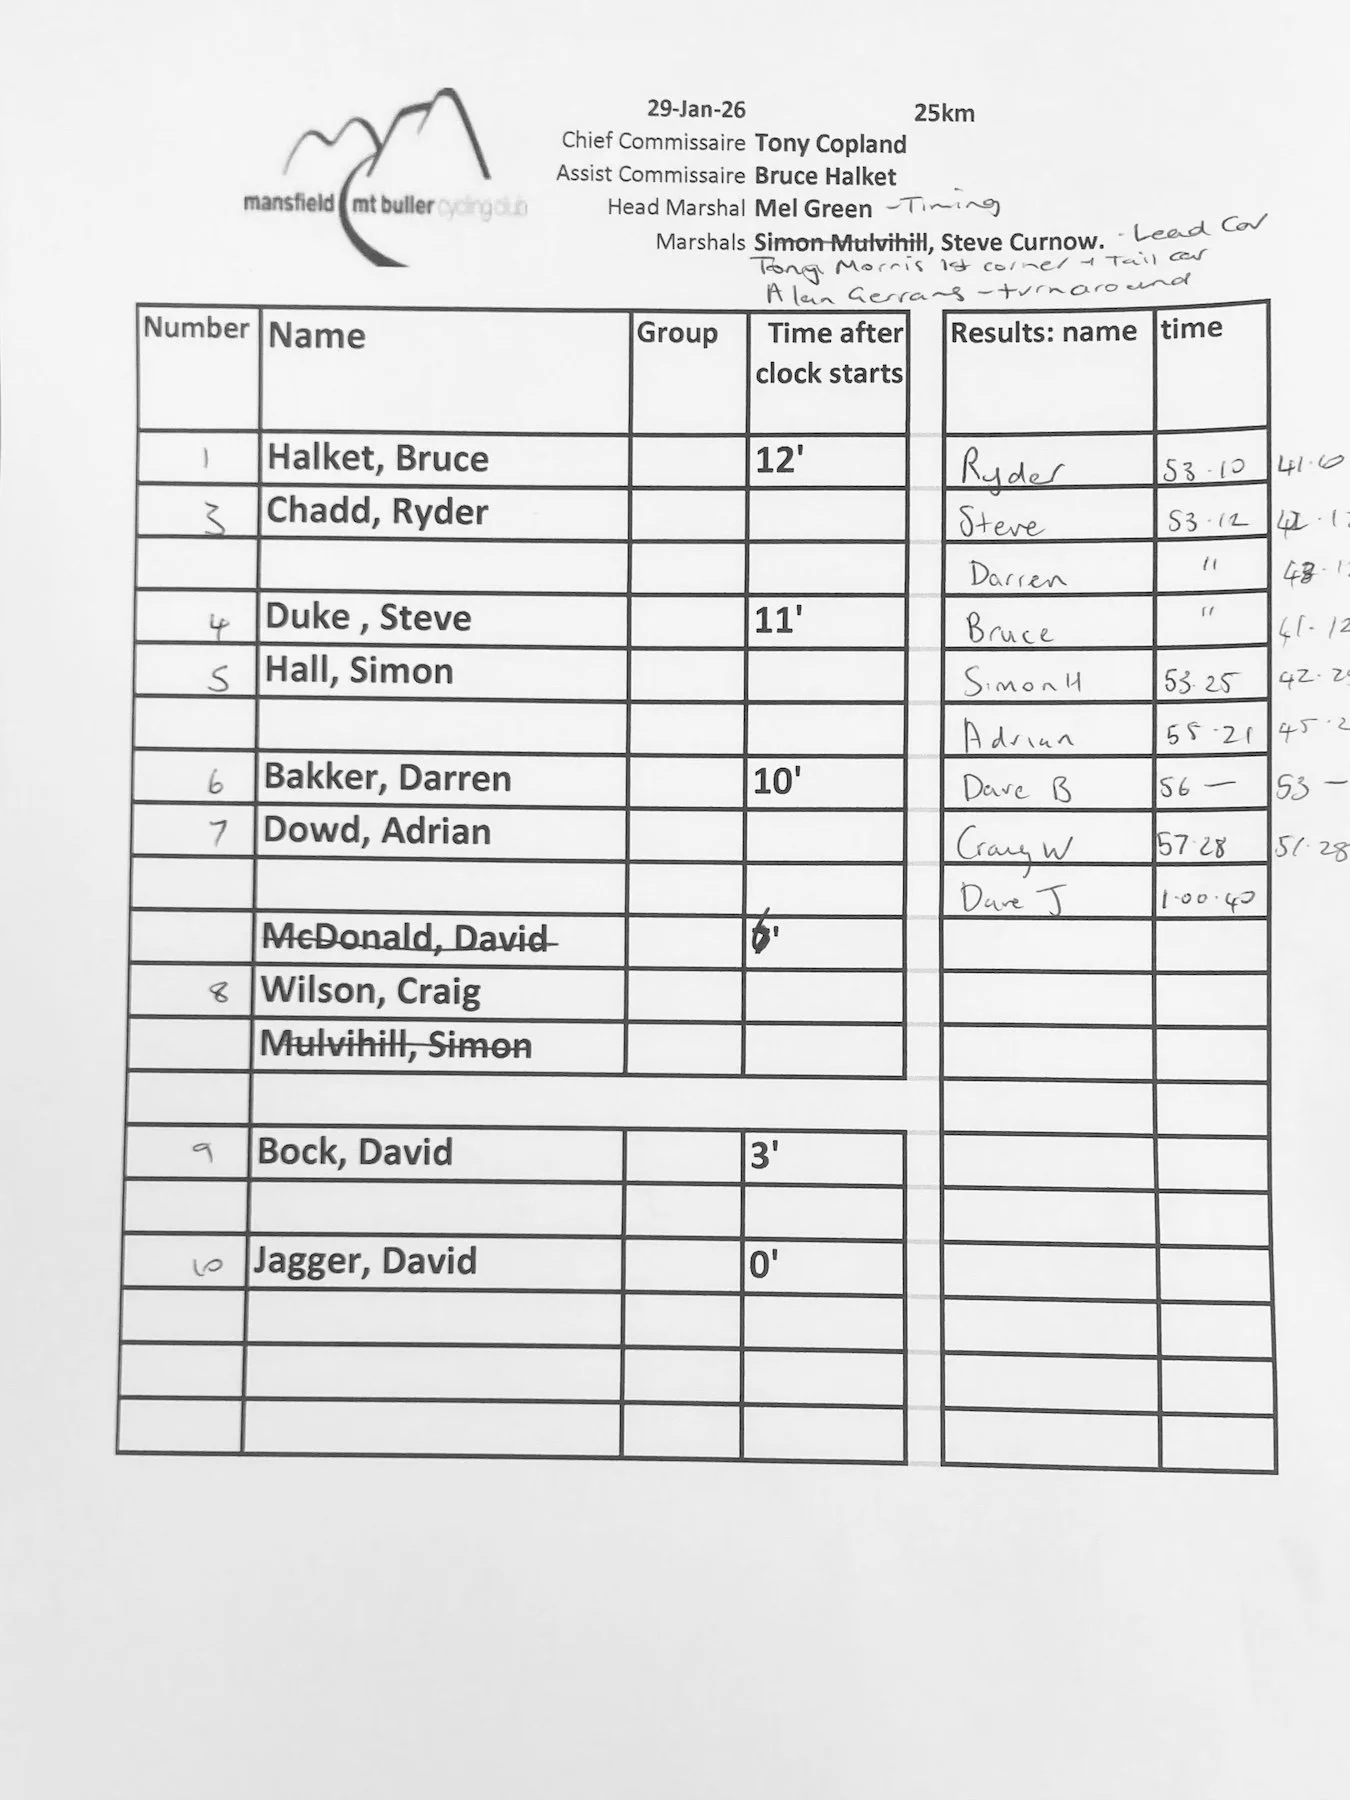 29-Jan-26 25km
Chief Commissaire Tony Copland
Assist Commissaire Bruce Halket
mansfield mt buller cycling club
Head Marshal Mel Green - Timing
Marshals Simon Mulvihill, Steve Curnow. - Lead Car
Tony Morris 1st corner + Tail car
Alan Gerrans - turnaround
Number Name Group Time after clock starts Results: name time
1 Halket, Bruce 12' Ryder 53.10
3 Chadd, Ryder Steve 53.12
Darren "
4 Duke , Steve 11' Bruce " 41.12
5 Hall, Simon Simon H 53.25
Adrian 55.21
6 Bakker, Darren 10' Dave B 56 — 53 —
7 Dowd, Adrian Craig W 57.28 51.28
Dave J 1.00.40
McDonald, David 6'
8 Wilson, Craig
Mulvihill, Simon
9 Bock, David 3'
10 Jagger, David 0'